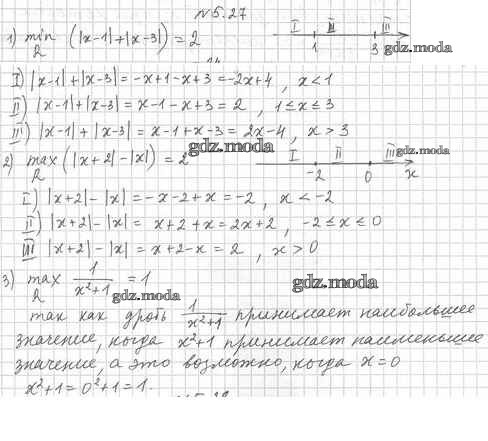 №5.27
1) min (|x-1|+|x-3|) = 2
R
I II III
1 3 gdz.moda
I) |x-1|+|x-3| = -x+1-x+3 = -2x+4, x<1
II) |x-1|+|x-3| = x-1-x+3 = 2, 1≤x≤3
III) |x-1|+|x-3| = x-1+x-3 = 2x-4, x>3
gdz.moda
2) max (|x+2|-|x|) = 2
R
I II III gdz.moda
-2 0 x
I) |x+2|-|x| = -x-2+x = -2, x<-2
II) |x+2|-|x| = x+2+x = 2x+2, -2≤x≤0
III |x+2|-|x| = x+2-x = 2, x>0
3) max 1/(x²+1) = 1
R
gdz.moda
gdz.moda
так как дробь 1/(x²+1) принимает наибольшее
значение, когда x²+1 принимает наименьшее
значение, а это возможно, когда x=0
x²+1=0²+1=1.